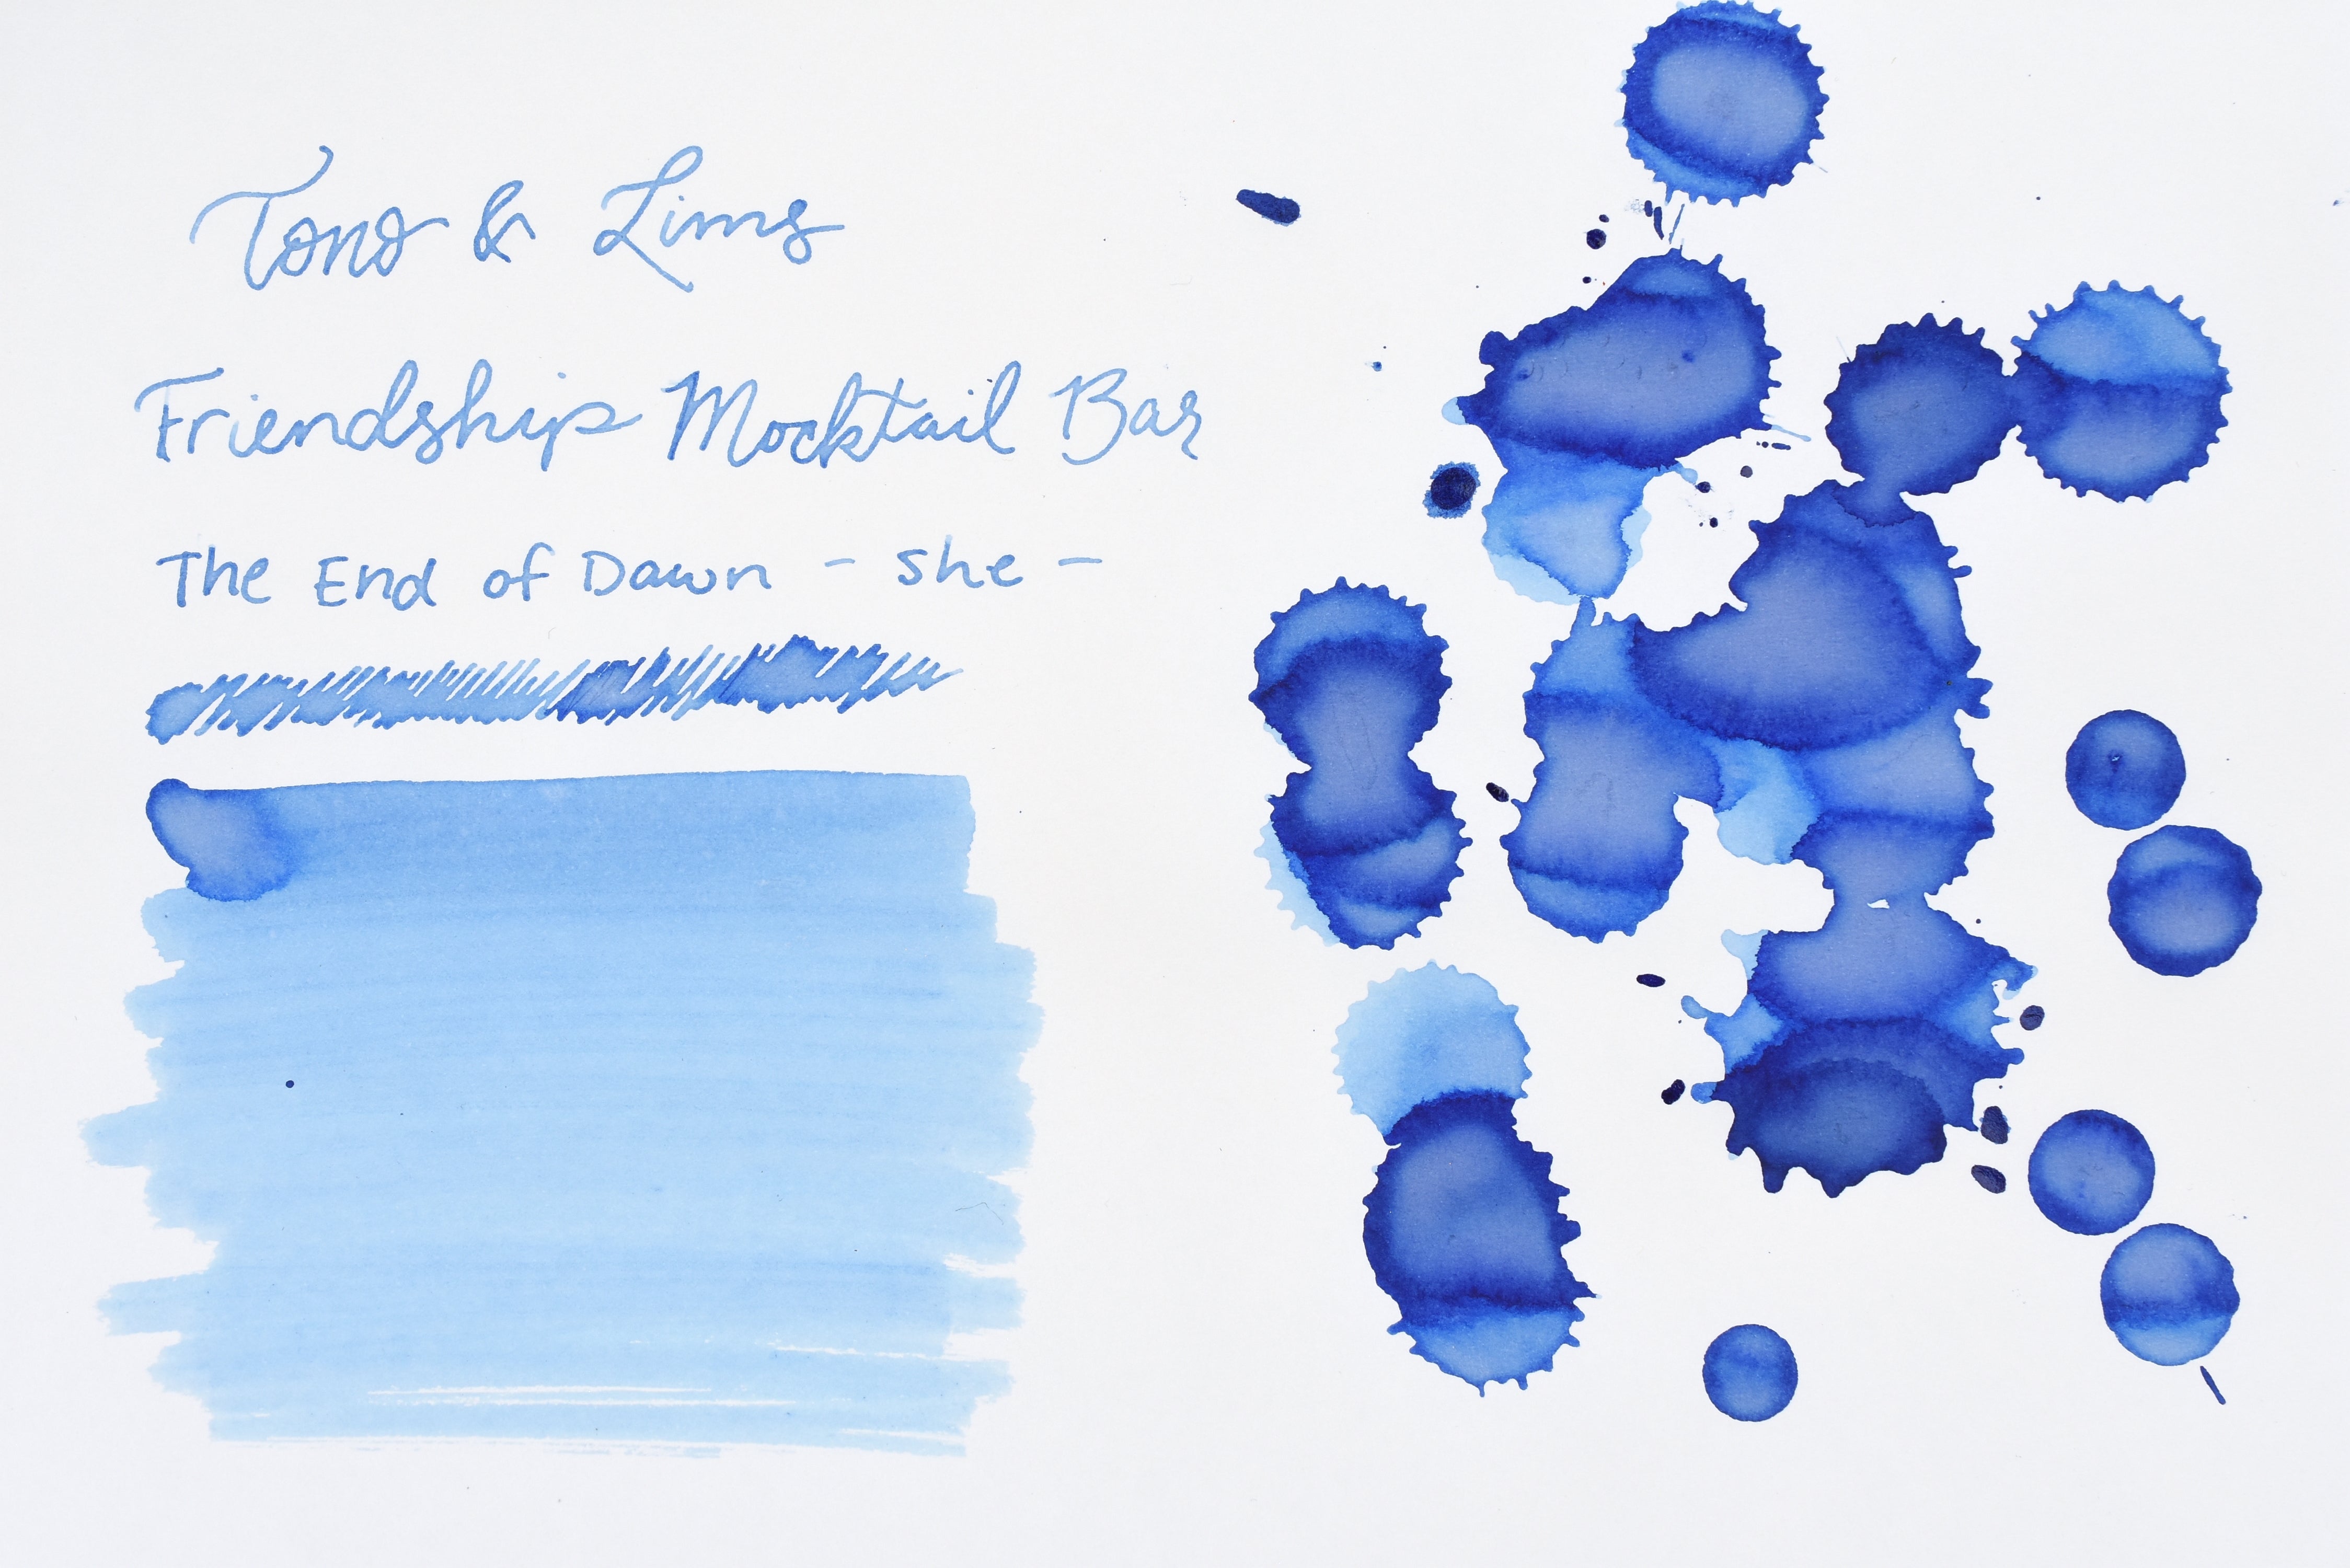 Tono & Lims
Friendship Mocktail Bar
The End of Dawn - she -